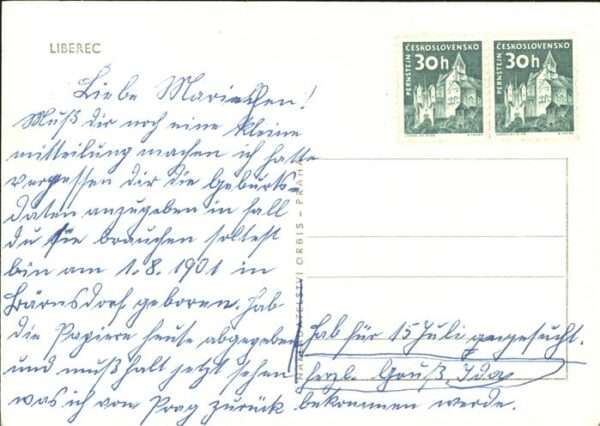 LIBEREC
ČESKOSLOVENSKO
PERNŠTEJN
30h
ČESKOSLOVENSKO
PERNŠTEJN
30h
Liebe Mariechen!
Muß dir noch eine kleine
mitteilung machen ich hatte
vergessen dir die Geburts-
daten anzugeben in fall
du sie brauchen soltest
bin am 1.8.1901 in
Bärnsdorf geboren. hab
die Papiere heute abgegeben
und muß halt jetzt sehen
was ich von Prag zurück bekommen werde.
hab für 15 Juli angesucht.
herzl. Gruß Ida
ORBIS - PRAHA